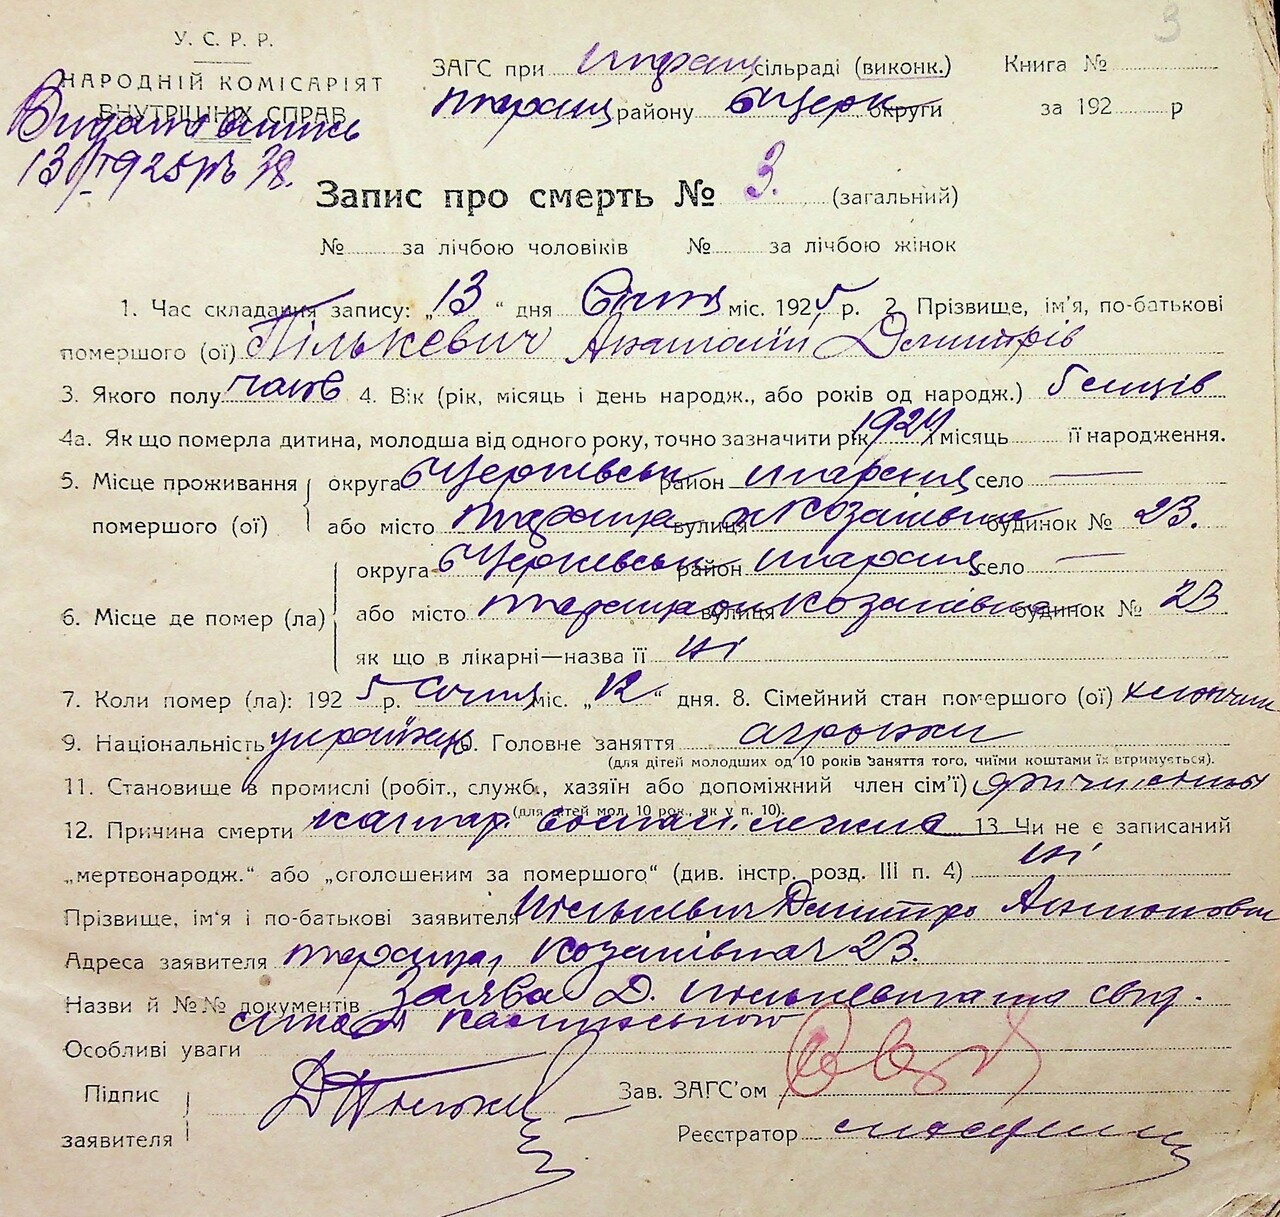 3
У. С. Р. Р.
НАРОДНІЙ КОМІСАРІЯТ
ВНУТРІШНІХ СПРАВ
13/I 1925 р № 38.
ЗАГС при сільраді (виконк.) Книга №
Таращ району БЦерк округи за 192 р
Запис про смерть № 3. (загальний)
№ за лічбою чоловіків № за лічбою жінок
1. Час складання запису: „13“ дня Січня міс. 1925 р. 2. Прізвище, ім'я, по-батькові
помершого (ої) Пількевич Анатолій Дмитрів
3. Якого полу чолов 4. Вік (рік, місяць і день народж., або років од народж.) 5 місців
4а. Як що померла дитина, молодша від одного року, точно зазначити рік 1924 і місяць її народження.
5. Місце проживання помершого (ої) округа БЦерківськ район Таращ село —
або місто Тараща вулиця Козаківка будинок № 23.
6. Місце де помер (ла) округа БЦерківськ район Таращ село —
або місто Тараща вулиця Козаківка будинок № 23
як що в лікарні—назва її ні
7. Коли помер (ла): 1925 р. Січня міс. „12“ дня. 8. Сімейний стан помершого (ої) хлопчик
9. Національність українець 10. Головне заняття агроном
(для дітей молодших од 10 років заняття того, чиїми коштами їх втримується).
11. Становище в промислі (робіт., служб., хазяїн або допоміжний член сім'ї)
(для дітей мол. 10 рок., як у п. 10).
12. Причина смерти катар. воспал. легких 13. Чи не є записаний
„мертвонародж.“ або „оголошеним за помершого“ (див. інстр. розд. III п. 4) ні
Прізвище, ім'я і по-батькові заявителя Пількевич Дмитро Антонович
Адреса заявителя Тараща, Козаківка 23.
Назви й №№ документів Заява Д. Пількевича та свід.
Особливі уваги
Підпис заявителя
Зав. ЗАГС'ом
Реєстратор